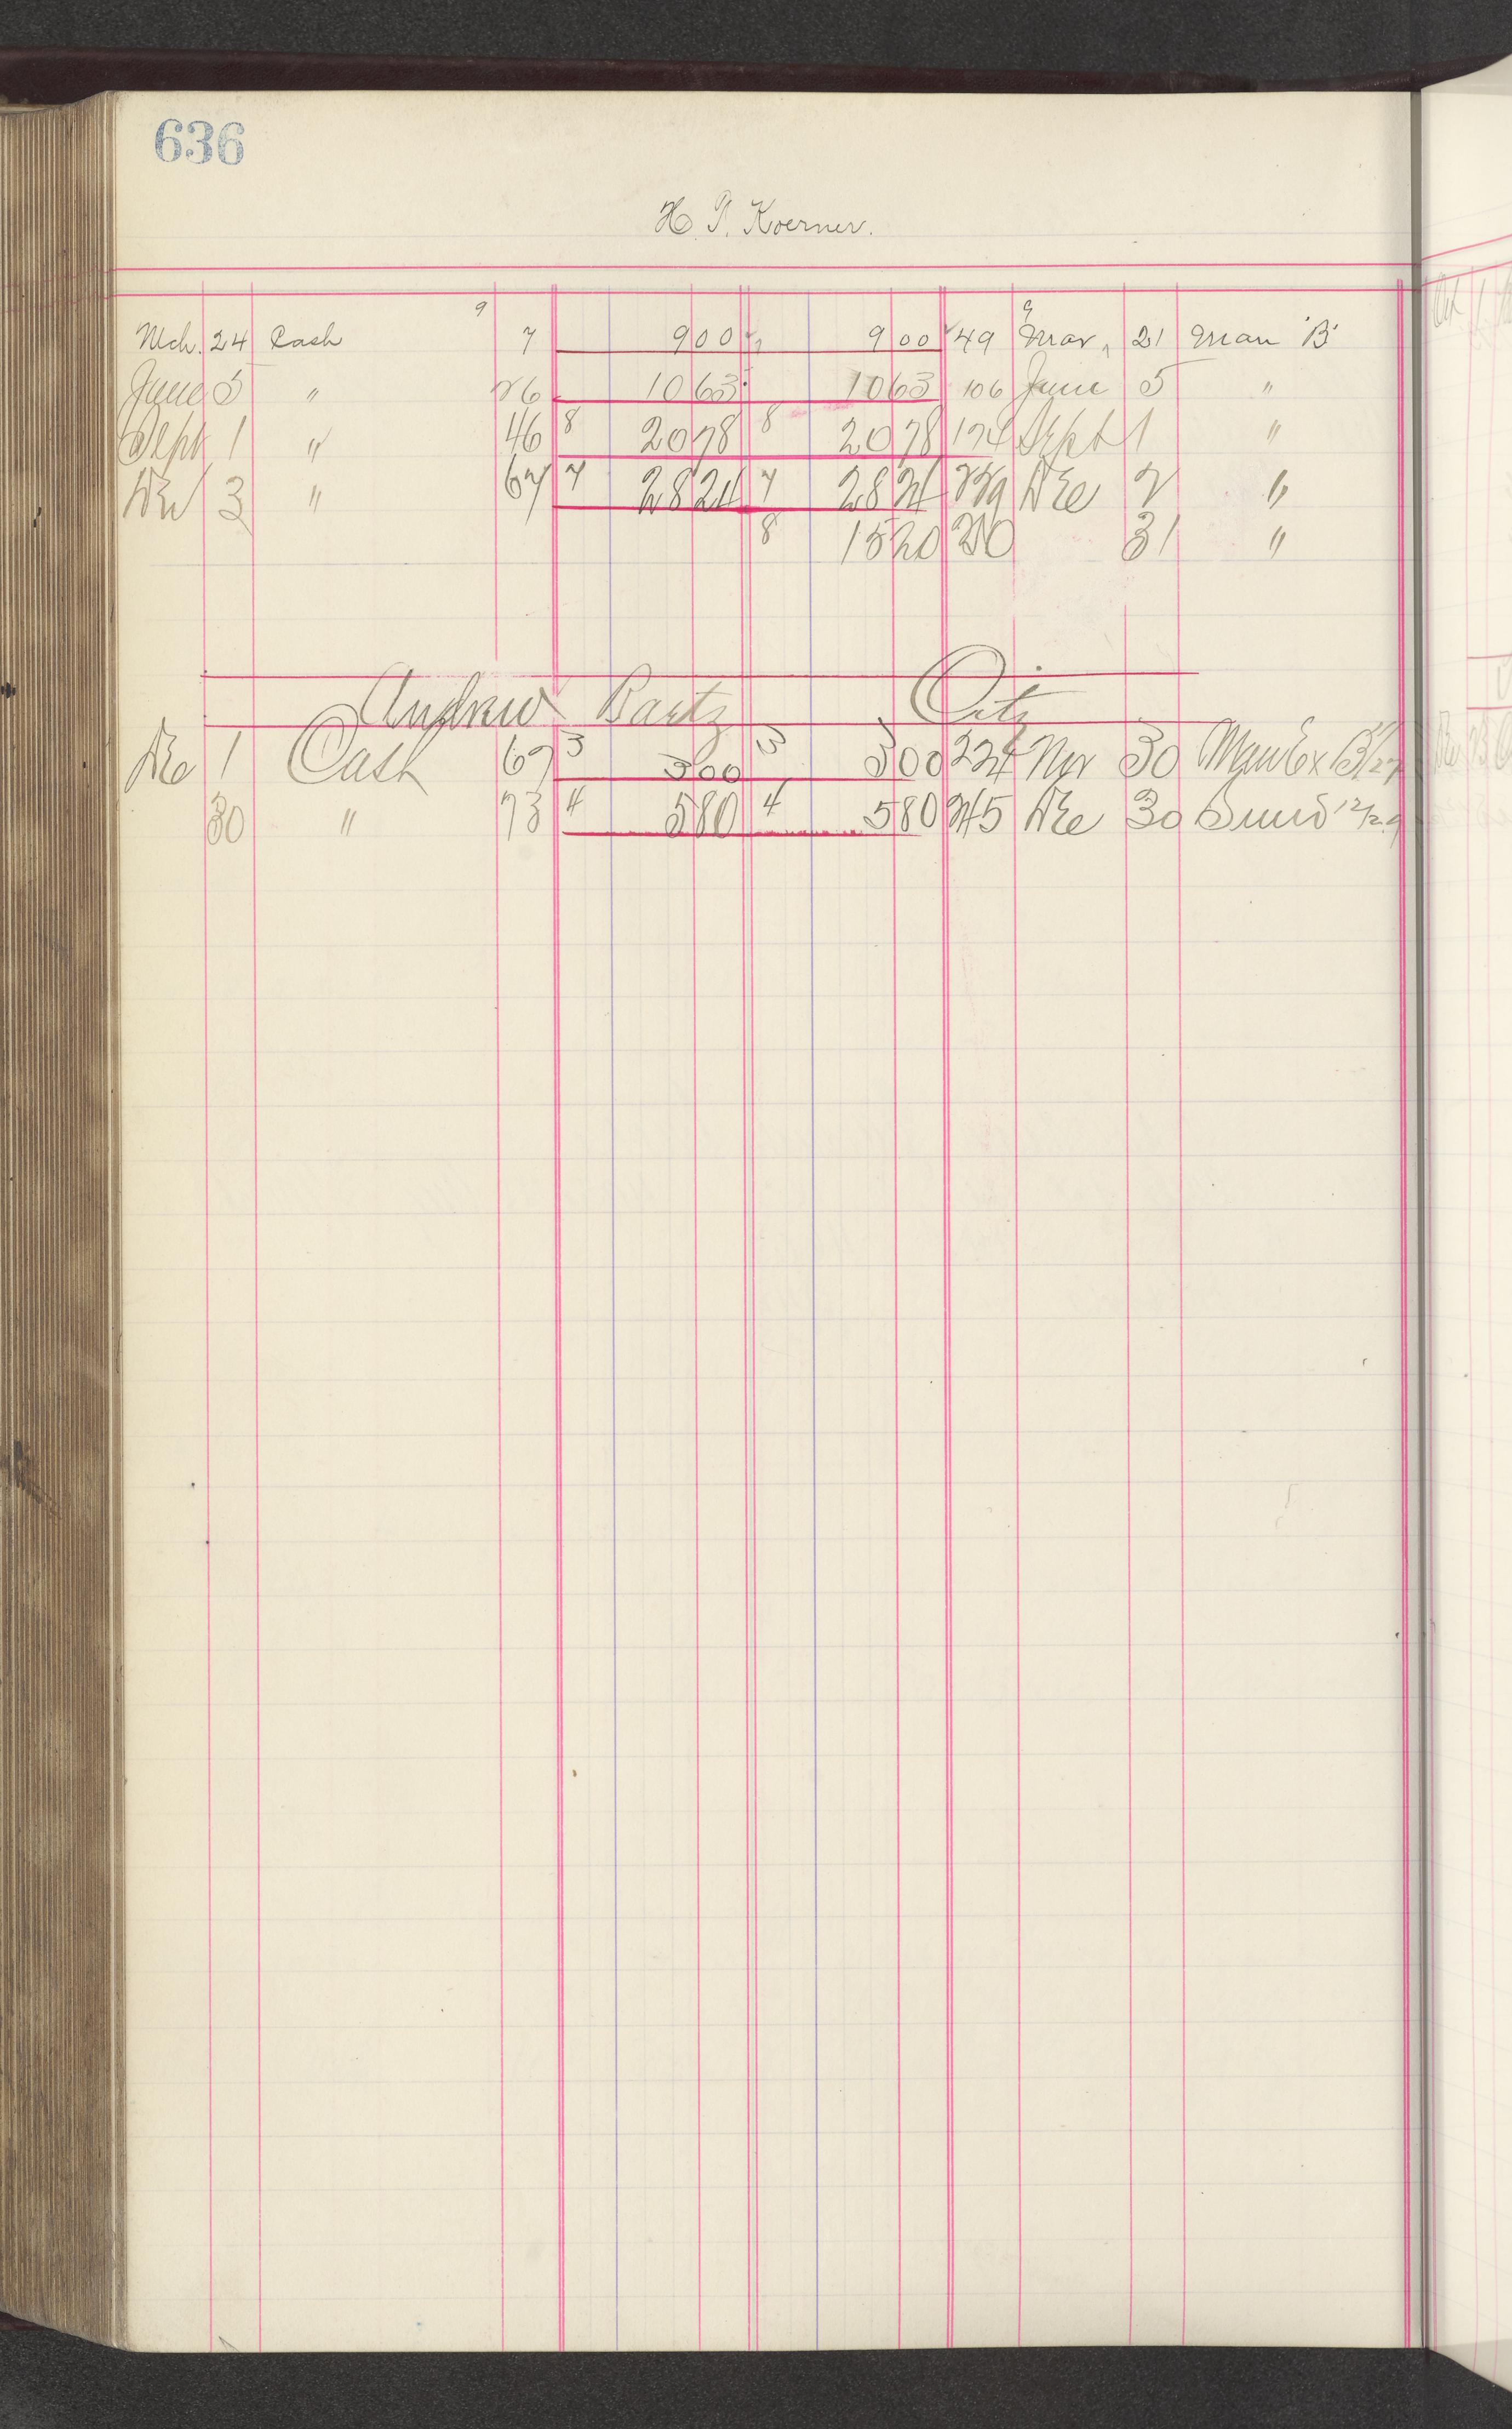 636
H. P. Koerner.
9 9
Mch. 24 Cash 7 900 900 49 Mar, 21 Man "B"
June 5 " 26 1063 1063 106 June 5 "
Sept 1 " 46 8 2078 8 2078 174 Sept 1 "
Dec 3 " 67 7 2824 7 2824 229 Dec 2 "
8 1520 31 "
Andrew Bartz City
Dec 1 Cash 67 3 300 3 300 224 Nov 30 Man Ex B
30 " 73 4 580 4 580 245 Dec 30